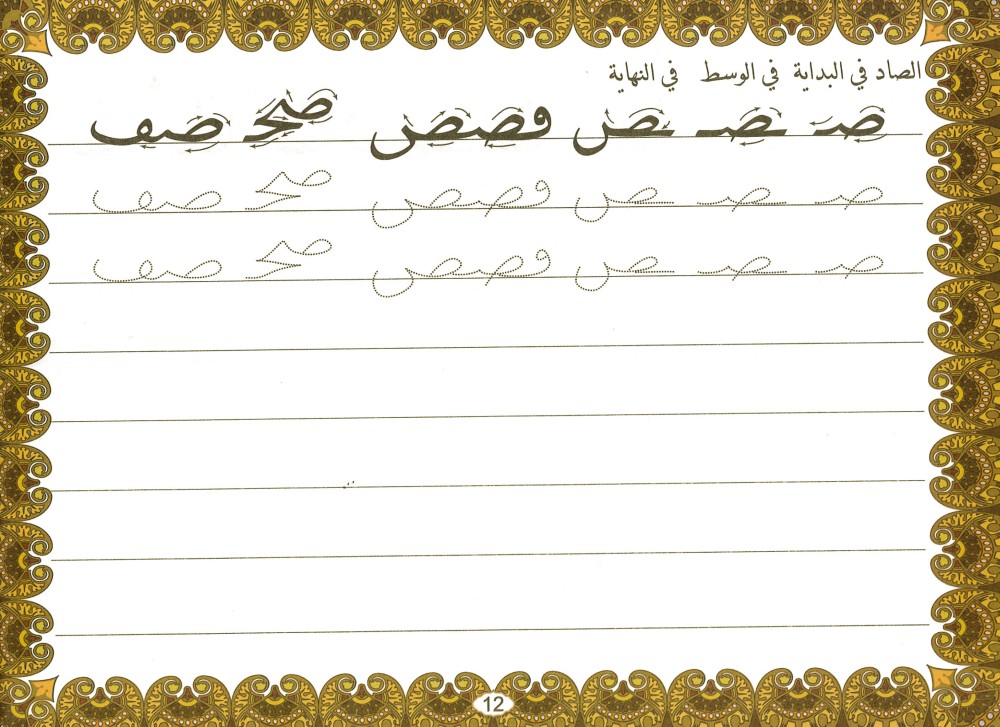 الصاد في البداية في الوسط في النهاية
صـ ـصـ ـص قصص صح صف
صـ ـصـ ـص قصص صح صف
صـ ـصـ ـص قصص صح صف
12